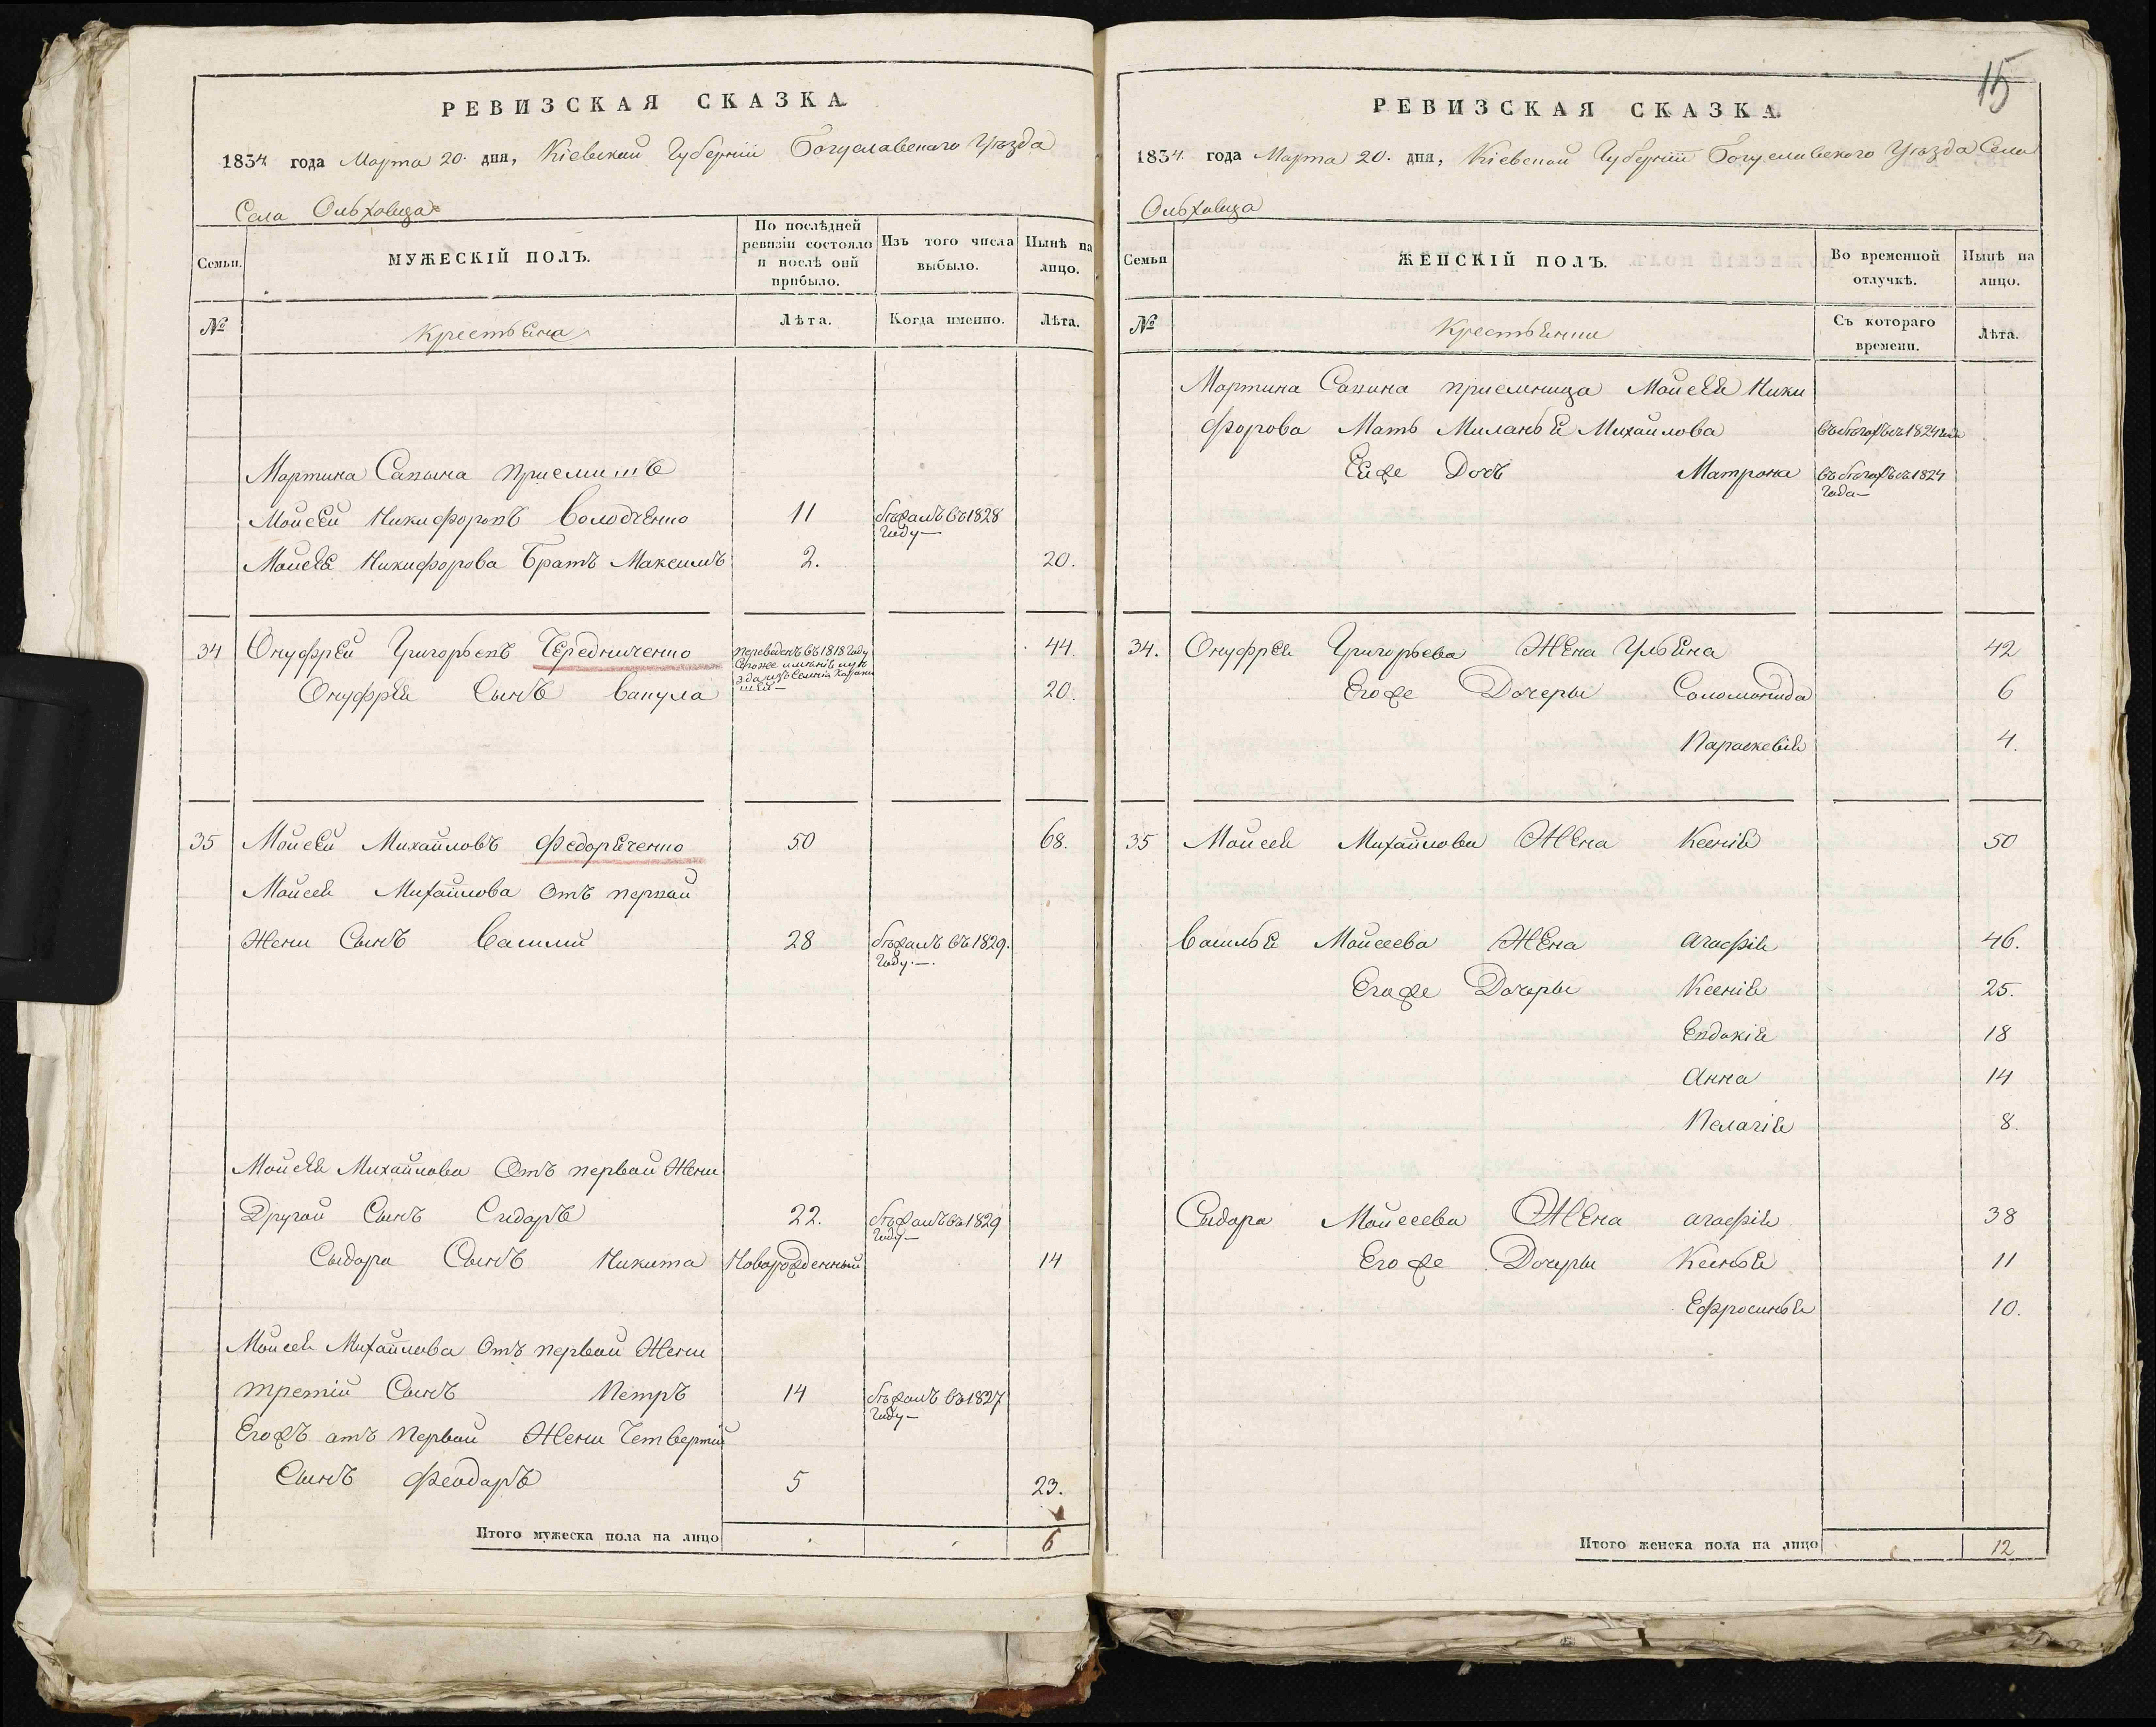 РЕВИЗСКАЯ СКАЗКА
1834 года Марта 20. дня, Кіевской Губерніи Богуславского Уѣзда
Села Ольховца
Семьи.
МУЖЕСКІЙ ПОЛЪ.
По послѣдней ревизіи состояло и послѣ оній прибыло.
Изъ того числа выбыло.
Нынѣ на лицо.
№
Крестьяна
Лѣта.
Когда именно.
Лѣта.
Мартина Сапына приемишъ
Моисей Никифоровъ Володченко 11 бѣжалъ въ 1828 Году
Моисея Никифорова Братъ Максимъ 2. 20.
34 Онуфрей Григорьевъ Чередниченко переведенъ въ 1818 Году 44
Онуфрея Сынъ Вакула 20.
35 Моисей Михайловъ Федорѣченко 50 68.
Моисея Михайлова отъ первой
Жени Сынъ Василий 28 бѣжалъ въ 1829. Году.
Моисея Михайлова Отъ первой Жени
Другой Сынъ Сидоръ 22. бѣжалъ въ 1829 Году
Сыдора Сынъ Никита Новорожденный 14
Моисея Михайлова Отъ первой Жени
третій Сынъ Петръ 14 бѣжалъ въ 1827 Году
Егожъ отъ первой Жени Четвертій
Сынъ Феодоръ 5 23.
Итого мужеска пола на лицо 6
15
РЕВИЗСКАЯ СКАЗКА
1834. года Марта 20. дня, Кіевской Губерніи Богуславского Уѣзда Села
Ольховца
Семьи
ЖЕНСКІЙ ПОЛЪ.
Во временной отлучкѣ.
Нынѣ на лицо.
№
Крестьянки
Съ котораго времени.
Лѣта.
Мартина Сапина приемница Моисея Ники
форова Мать Миланья Михайлова въ бѣгахъ съ 1824 Года
Еяже Дочь Матрона въ бѣгахъ съ 1824 Года
34. Онуфрея Григорьева Жена Ульяна 42
Егоже Дочеры Соломонида 6
Параскевія 4.
35 Моисея Михайлова Жена Ксенія 50
Василья Моисеева Жена Агафія 46.
Егоже Дочеры Ксенія 25.
Евдокія 18
Анна 14
Пелагія 8.
Сидора Моисеева Жена Агафія 38
Егоже Дочеры Ксенья 11
Ефросинья 10.
Итого женска пола на лицо 12